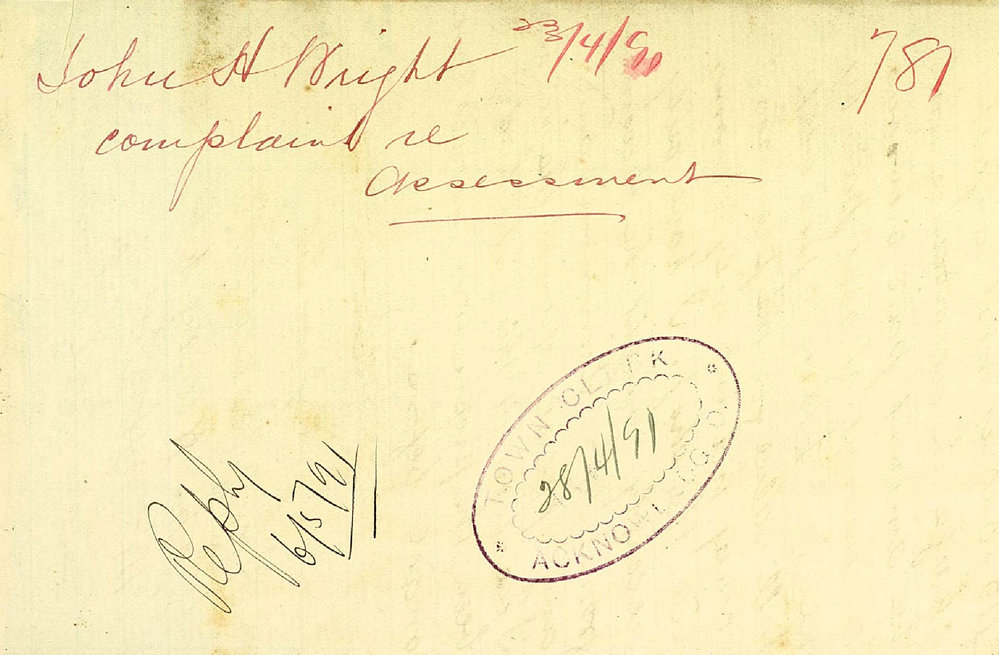 John H Wright 23/4/90 781
complaint re
Assessment
TOWN CLERK
28/4/91
ACKNOWLEDGD.
Reply
6/5/91